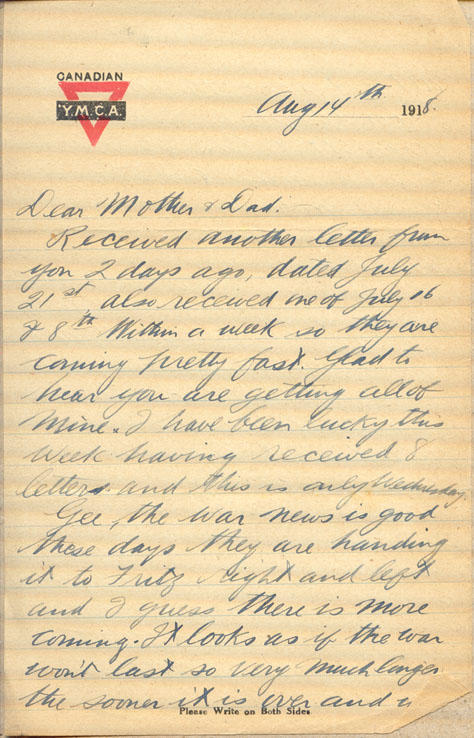 CANADIAN
Y.M.C.A.
Aug 14th 1918.
Dear Mother & Dad.
Received another letter from
you 2 days ago, dated July
21st also received one of July 16
& 8th Within a week so they are
coming pretty fast. Glad to
hear you are getting all of
mine. I have been lucky this
Week having received 8
letters and this is only Wednesday
Gee, the war news is good
these days they are handing
it to Fritz right and left
and I guess there is more
coming. It looks as if the war
won't last so very much longer
the sooner it is over and
Please Write on Both Sides